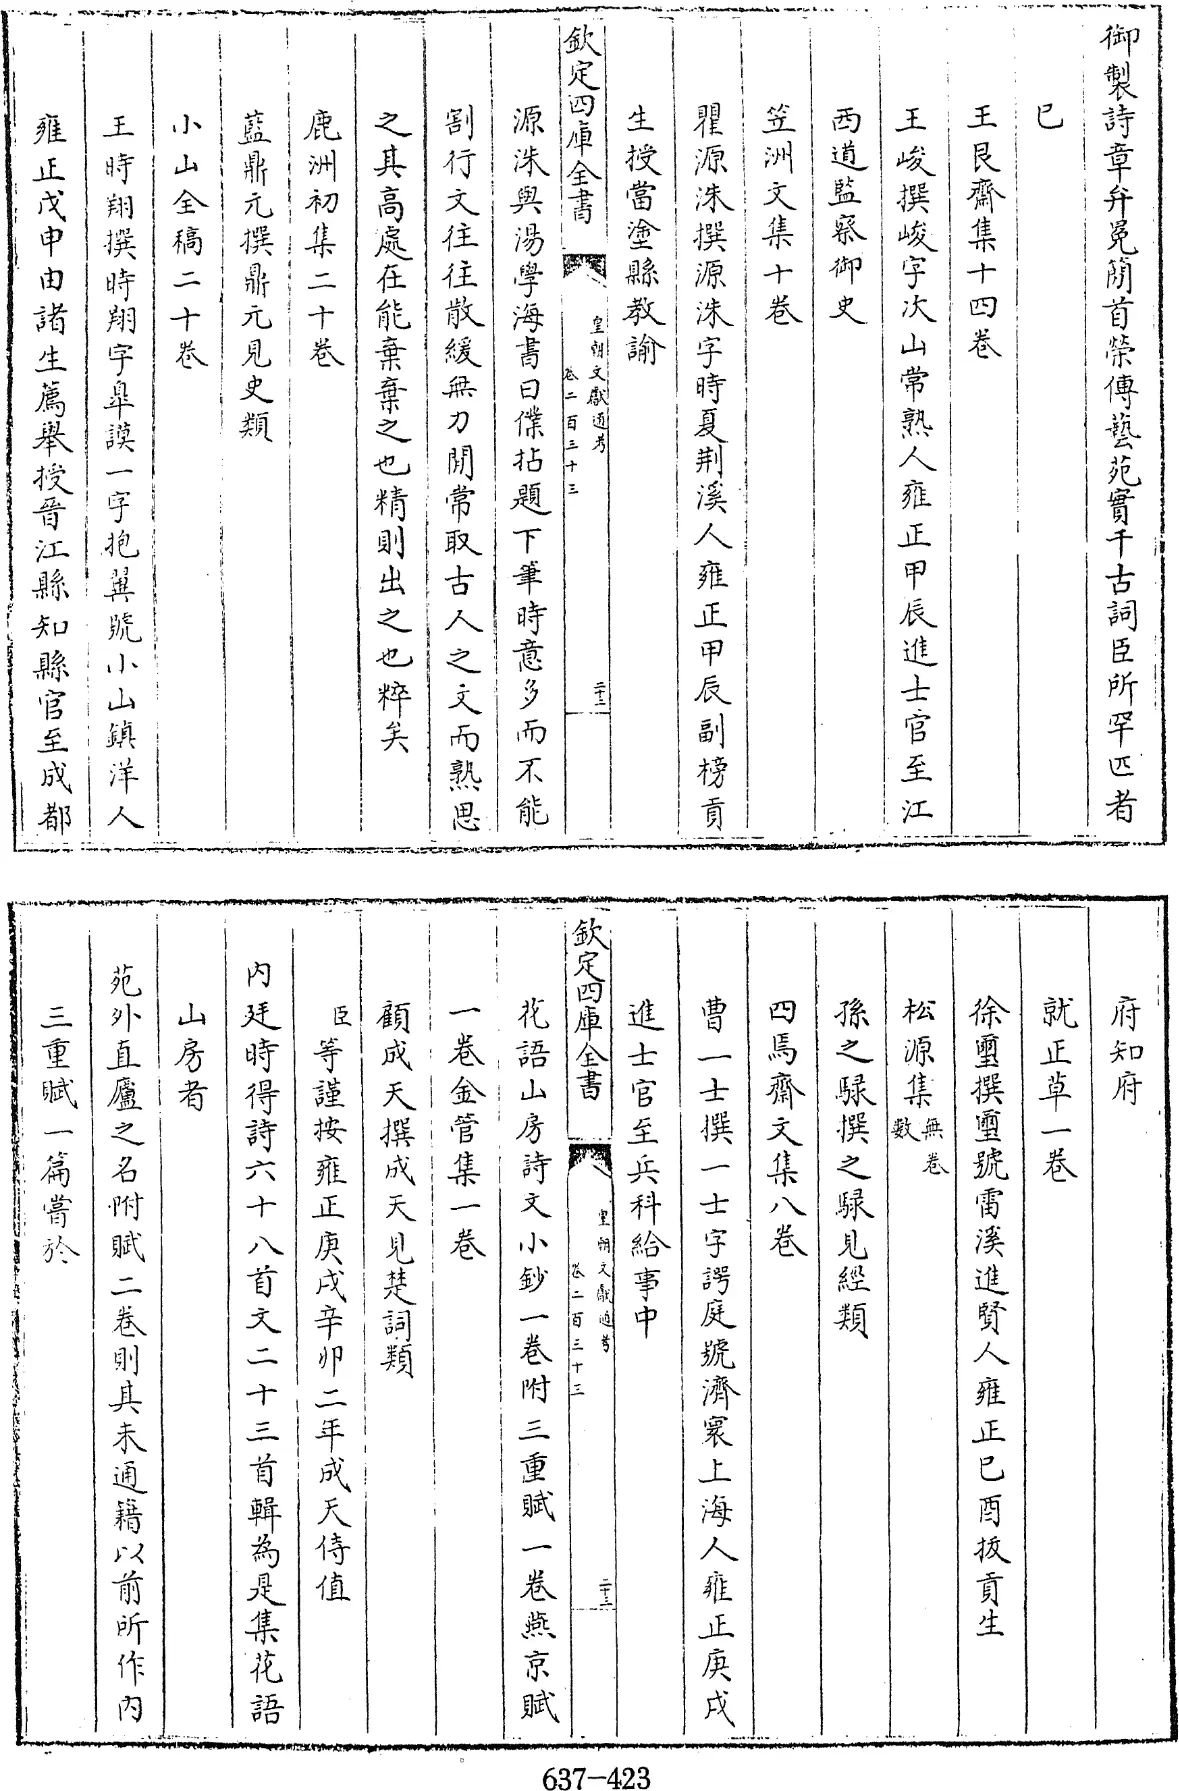 御製詩章弁冕簡首榮傳藝苑實千古詞臣所罕匹者
已
王艮齋集十四卷
王峻撰峻字次山常熟人雍正甲辰進士官至江
西道監察御史
笠洲文集十卷
瞿源洙撰源洙字時夏荆溪人雍正甲辰副榜貢
生授當塗縣教諭
欽定四庫全書
皇朝文獻通考
卷二百三十三
二十二
源洙與湯學海書曰僕拈題下筆時意多而不能
割行文往往散緩無力閒常取古人之文而熟思
之其高處在能棄棄之也精則出之也粹矣
鹿洲初集二十卷
藍鼎元撰鼎元見史類
小山全稿二十卷
王時翔撰時翔字臯謨一字抱翼號小山鎮洋人
雍正戊申由諸生薦舉授晉江縣知縣官至成都
府知府
就正草一卷
徐璽撰璽號雷溪進賢人雍正己酉拔貢生
松源集無卷數
孫之騄撰之騄見經類
四焉齋文集八卷
曹一士撰一士字諤庭號濟寰上海人雍正庚戌
進士官至兵科給事中
欽定四庫全書
皇朝文獻通考
卷二百三十三
二十三
花語山房詩文小鈔一卷附三重賦一卷燕京賦
一卷金管集一卷
顧成天撰成天見楚詞類
臣等謹按雍正庚戌辛卯二年成天侍值
内廷時得詩六十八首文二十三首輯為是集花語
山房者
苑外直廬之名附賦二卷則其未通籍以前所作内
三重賦一篇嘗於
637-423